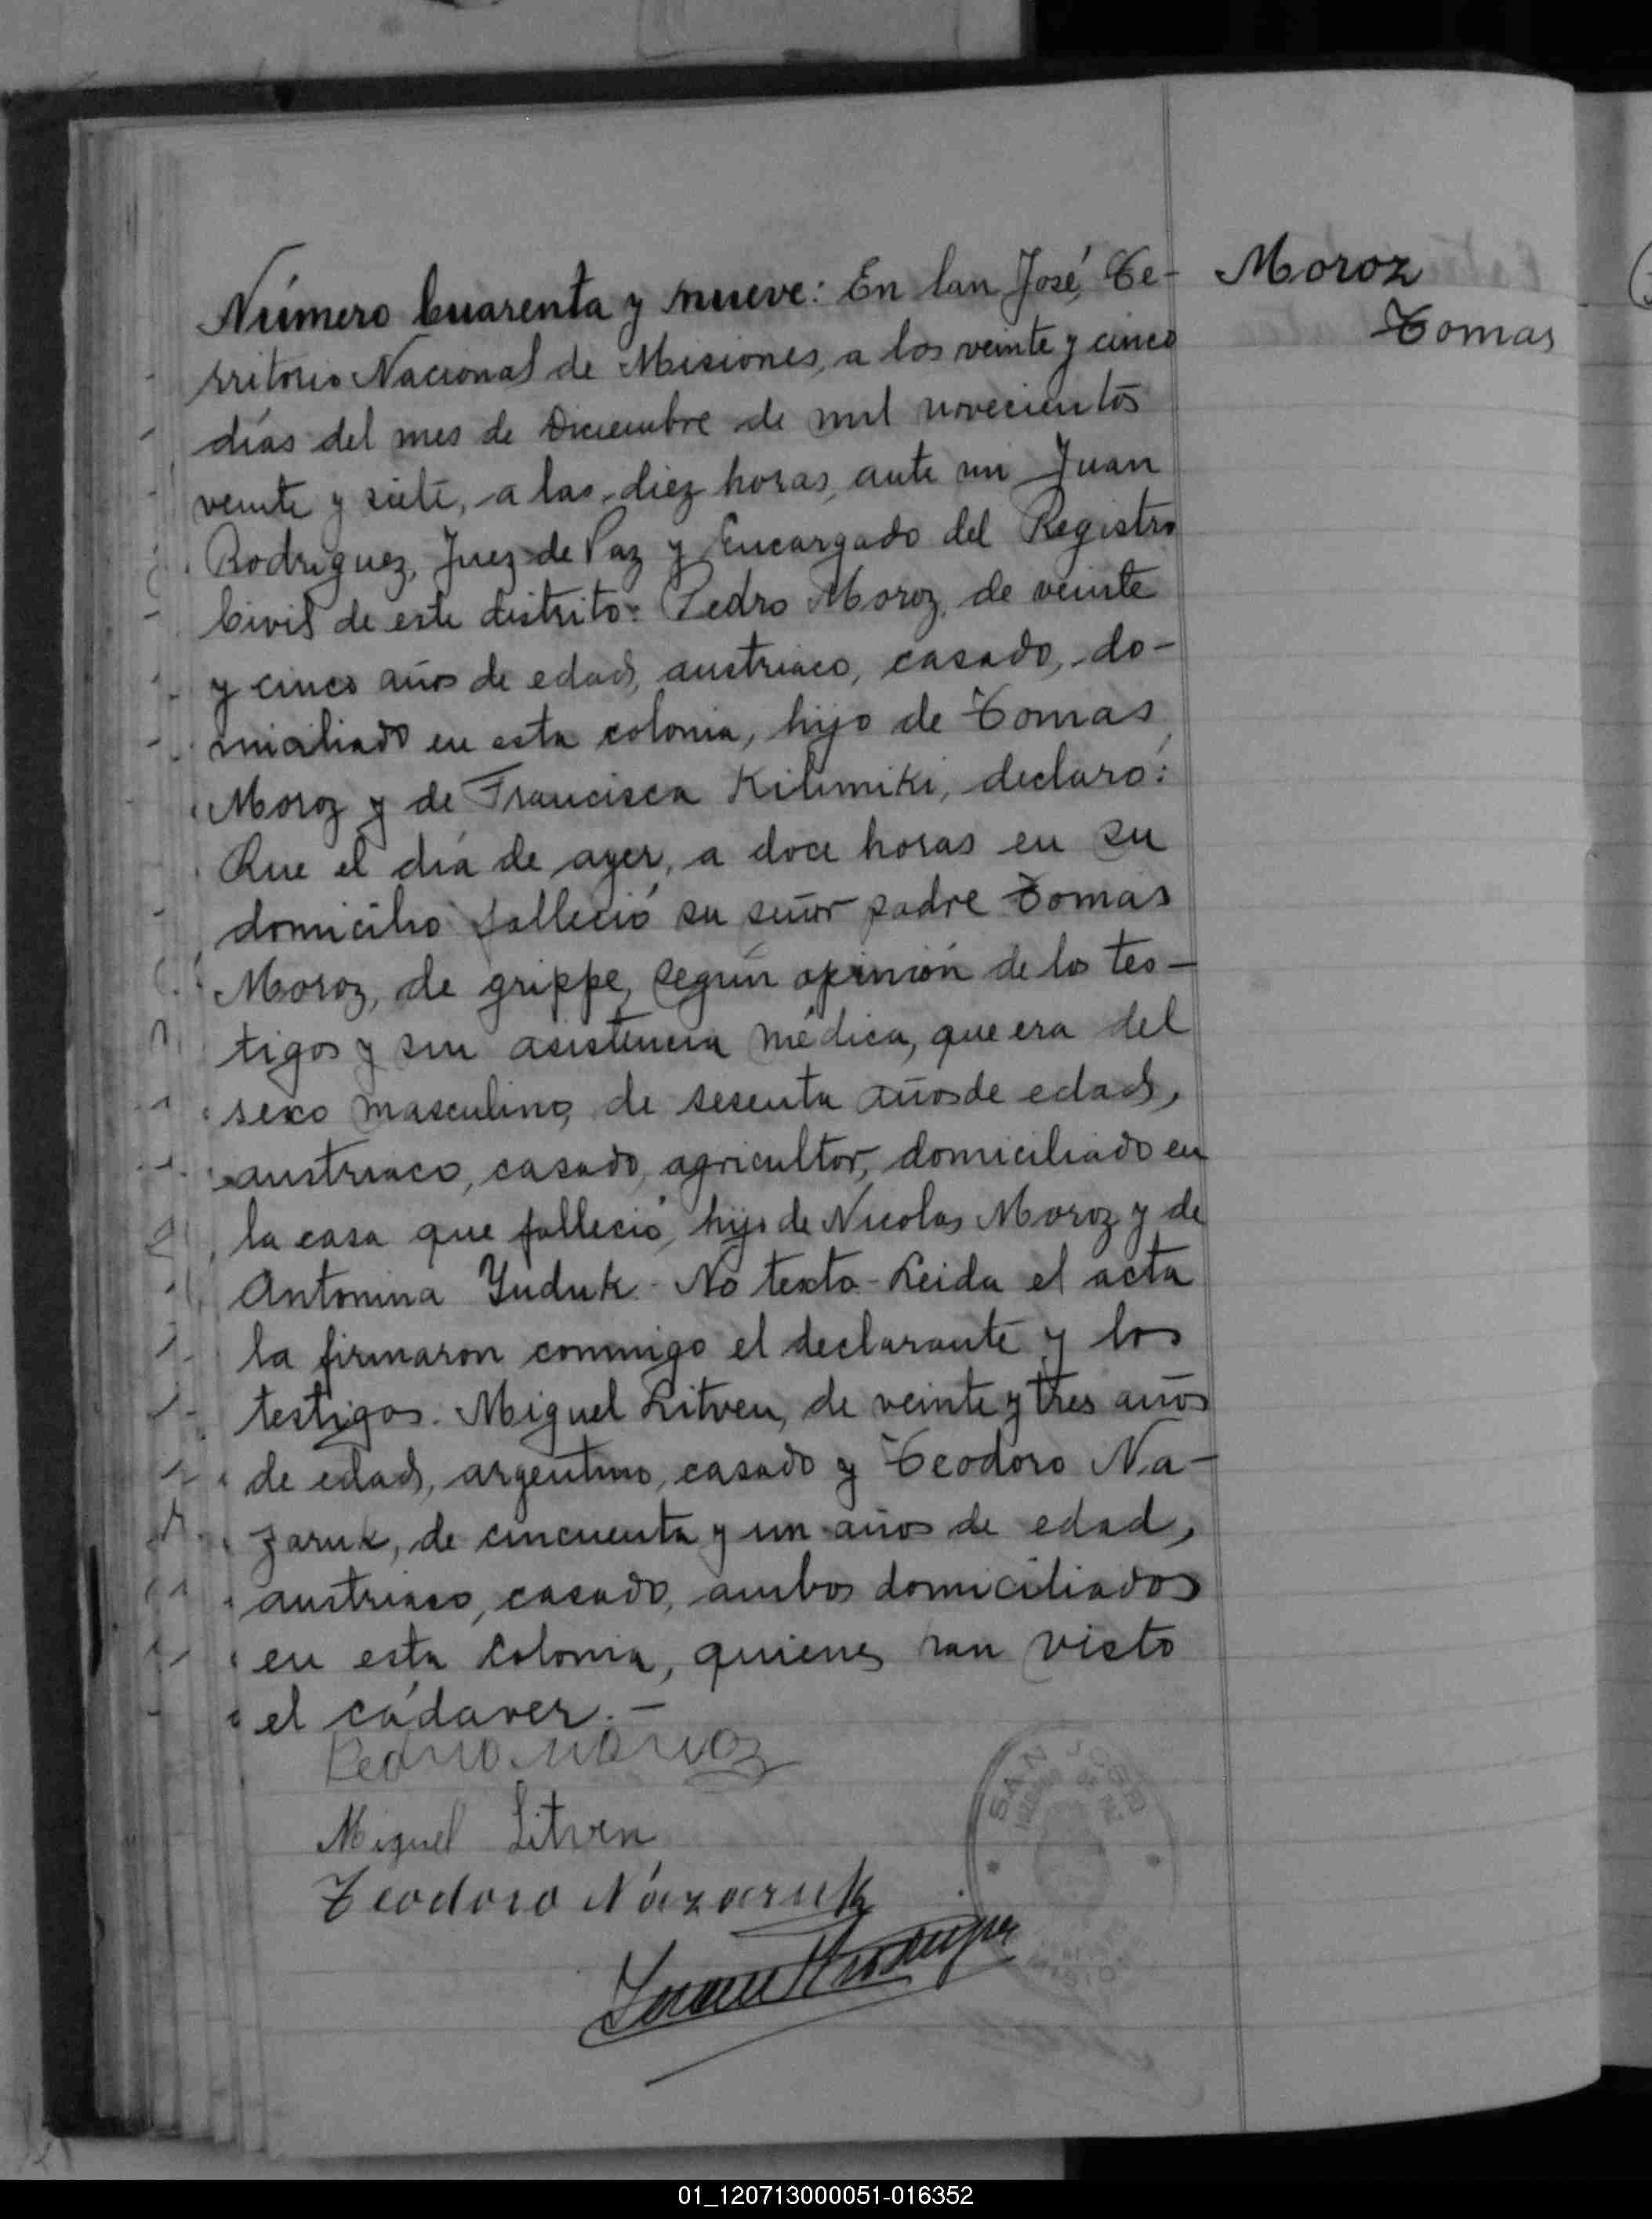 Moroz
Tomas
Número Cuarenta y nueve: En San José, Te-
rritorio Nacional de Misiones, a los veinte y cinco
días del mes de Diciembre de mil novecientos
veinte y siete, a las diez horas, ante mi Juan
Rodriguez, Juez de Paz y Encargado del Registro
Civil de este distrito: Pedro Moroz, de veinte
y cinco años de edad, austriaco, casado, do-
miciliado en esta colonia, hijo de Tomas
Moroz y de Francisca Kilimiki, declaró:
Que el día de ayer, a doce horas en su
domicilio falleció su señor padre Tomás
Moroz, de grippe, según opinión de los tes-
tigos y sin asistencia médica, que era del
sexo masculino, de sesenta años de edad,
austriaco, casado, agricultor, domiciliado en
la casa que falleció, hijo de Nicolas Moroz y de
Antonina Yuduk - No texto - Leida el acta
la firmaron conmigo el declarante y los
testigos. Miguel Litven, de veinte y tres años
de edad, argentino, casado y Teodoro Na-
zaruk, de cincuenta y un años de edad,
austriaco, casado, ambos domiciliados
en esta Colonia, quienes han visto
el cádaver. -
Pedro Moroz
Miguel Litven
Teodoro Názaruk
Juan Rodriguez
SAN JOSÉ
01_120713000051-016352